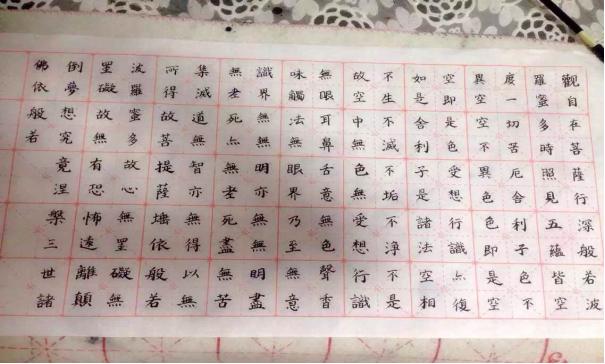 觀自在菩薩行深般若波
羅蜜多時照見五蘊皆空
度一切苦厄舍利子色不
異空空不異色色即是空
空即是色受想行識亦復
如是舍利子是諸法空相
不生不滅不垢不淨不是
故空中無色無受想行識
無眼耳鼻舌意無色聲香
味觸法無眼界乃至無意
識界無無明亦無無明盡
無老死亦無老死盡無苦
集滅道無智亦無得以無
所得故菩提薩埵依般若
波羅蜜多故心無罣礙無
罣礙故無有恐怖遠離顛
倒夢想究竟涅槃三世諸
佛依般若